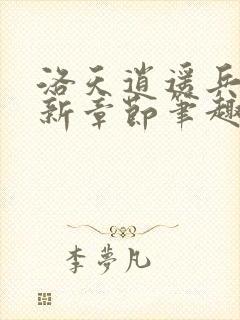 洛天逍遥兵
新章節筆趣
李夢凡